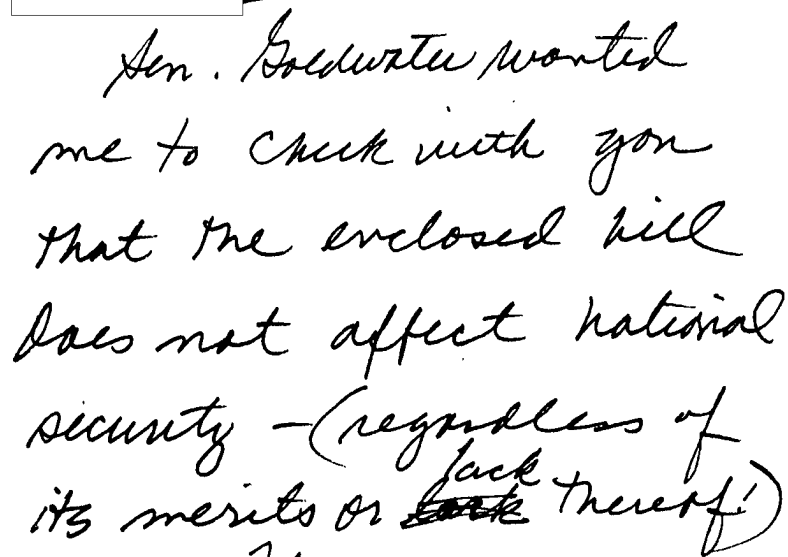 Sen. Goldwater wanted
me to check with you
that the enclosed bill
does not affect national
security - (regardless of
its merits or lack thereof!)